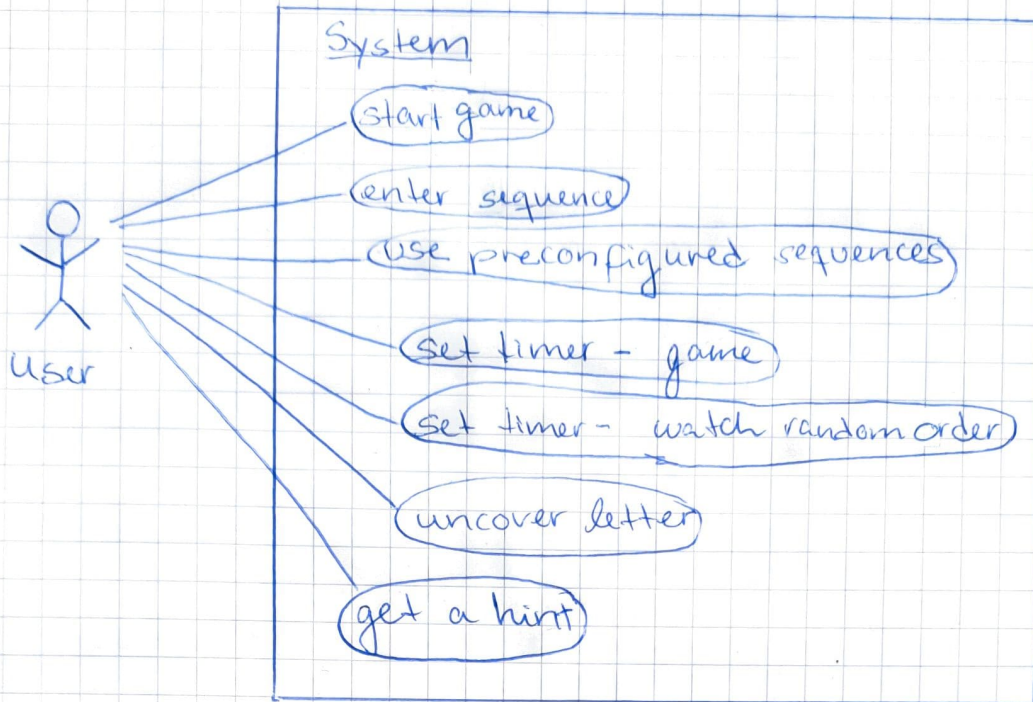 System
start game
enter sequence
use preconfigured sequences
set timer - game
set timer - watch random order
uncover letter
get a hint
User